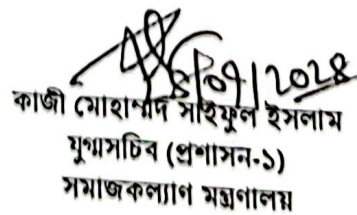 ৪/০৭/২০২৪
কাজী মোহাম্মদ সাইফুল ইসলাম
যুগ্মসচিব (প্রশাসন-১)
সমাজকল্যাণ মন্ত্রণালয়